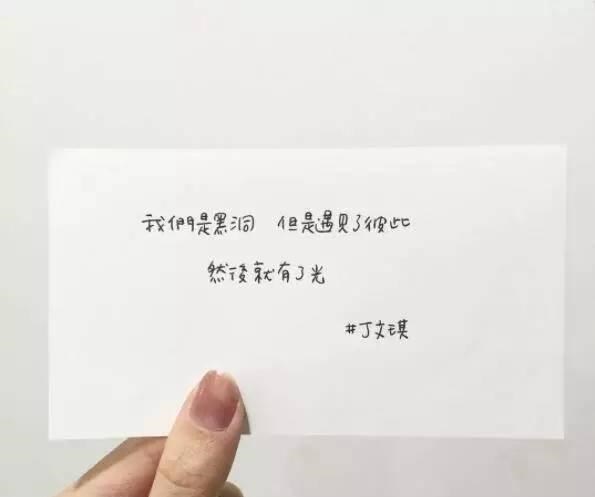 我們是黑洞　但是遇見了彼此
然後就有了光
#丁文琪